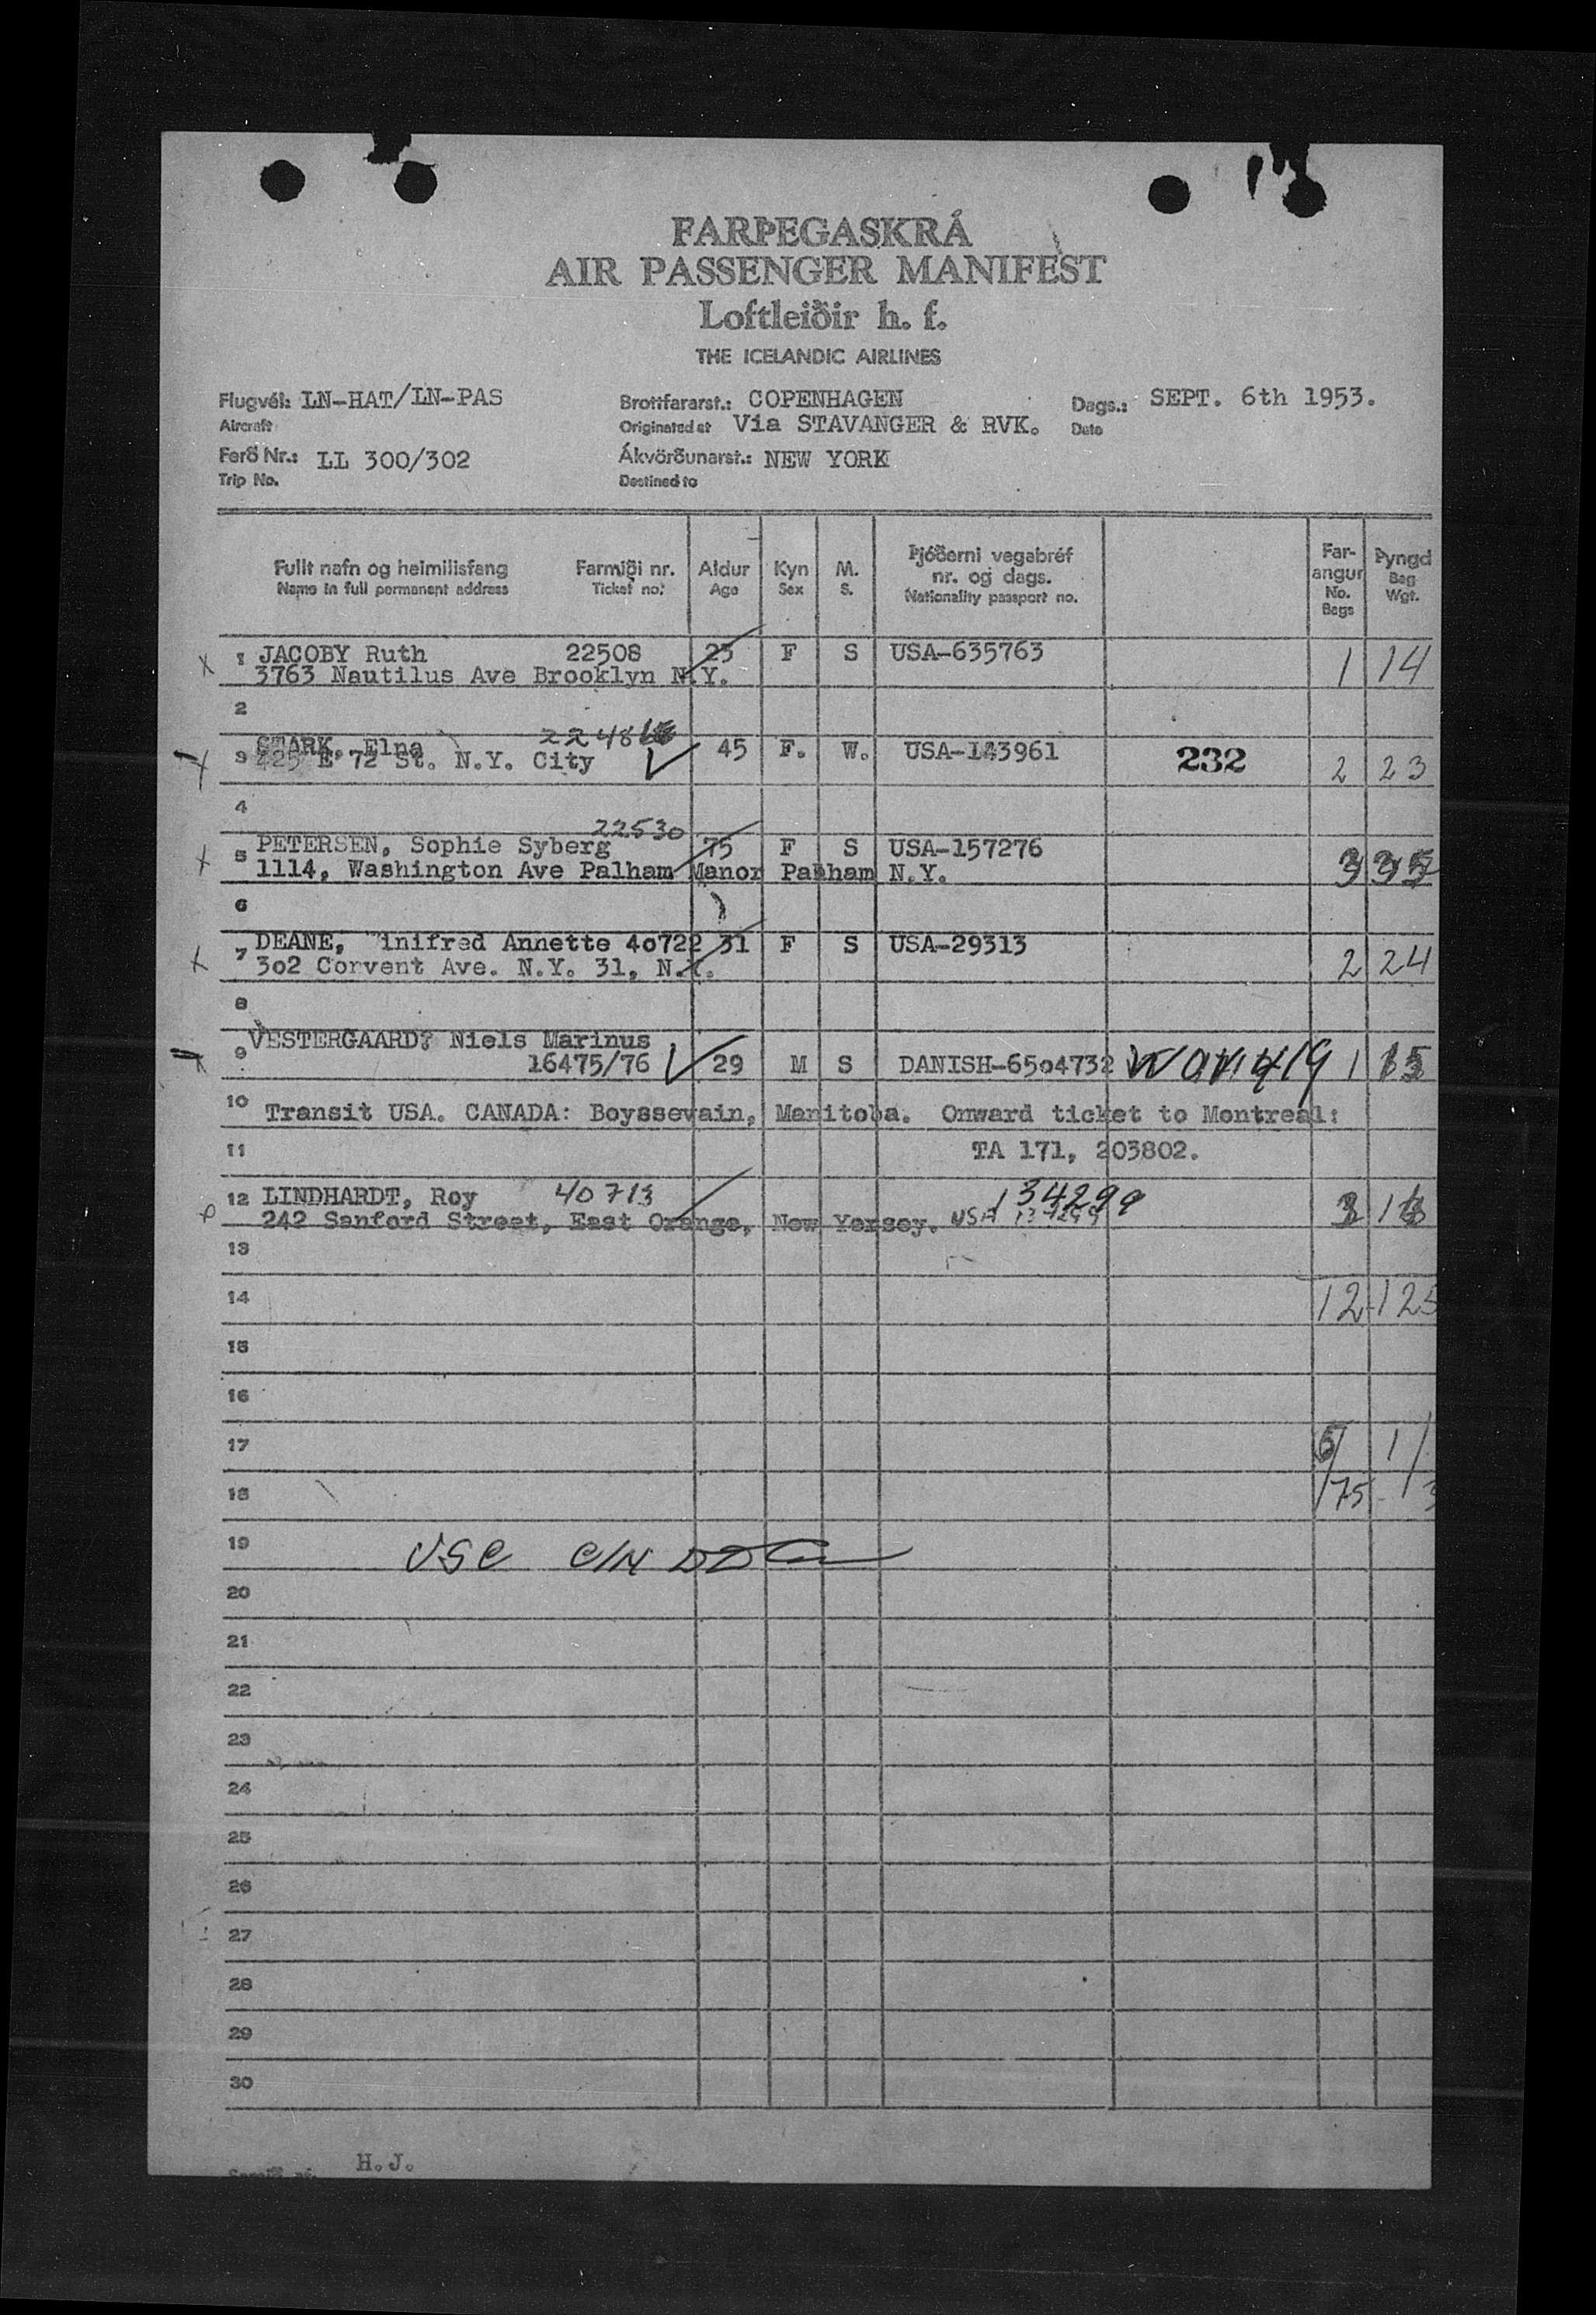 FARÞEGASKRÁ
AIR PASSENGER MANIFEST
Loftleiðir h. f.
THE ICELANDIC AIRLINES
Flugvél: LN-HAT/LN-PAS Brottfararst.: COPENHAGEN Dags.: SEPT. 6th 1953.
Aircraft Originated at Via STAVANGER & RVK. Date
Ferð Nr.: LL 300/302 Ákvörðunarst.: NEW YORK
Trip No. Destined to
Fullt nafn og heimilisfang Farmiði nr. Aldur Kyn M. Þjóðerni vegabréf nr. og dags. Far-angur Þyngd
Name in full permanent address Ticket no. Age Sex S. Nationality passport no. No. Bags Bag Wgt.
1 JACOBY Ruth 22508 23 F S USA-635763 1 14
3763 Nautilus Ave Brooklyn N.Y.
2
STARK, Elna 22486
3 425 E 72 St. N.Y. City 45 F. W. USA-143961 232 2 23
4
22530
5 PETERSEN, Sophie Syberg 75 F S USA-157276
1114, Washington Ave Palham Manor Palham N.Y. 3 35
6
7 DEANE, Winifred Annette 4o722 31 F S USA-29313
3o2 Corvent Ave. N.Y. 31, N.Y. 2 24
8
VESTERGAARD? Niels Marinus
9 16475/76 29 M S DANISH-65o4732 1 15
10 Transit USA. CANADA: Boyssevain, Manitoba. Onward ticket to Montreal:
11 TA 171, 203802.
12 LINDHARDT, Roy 40713 134299
242 Sanford Street, East Orange, New Yersey. USA 134299
13
14 12 125
15
16
17
18 175
19 USC
20
21
22
23
24
25
26
27
28
29
30
H.J.